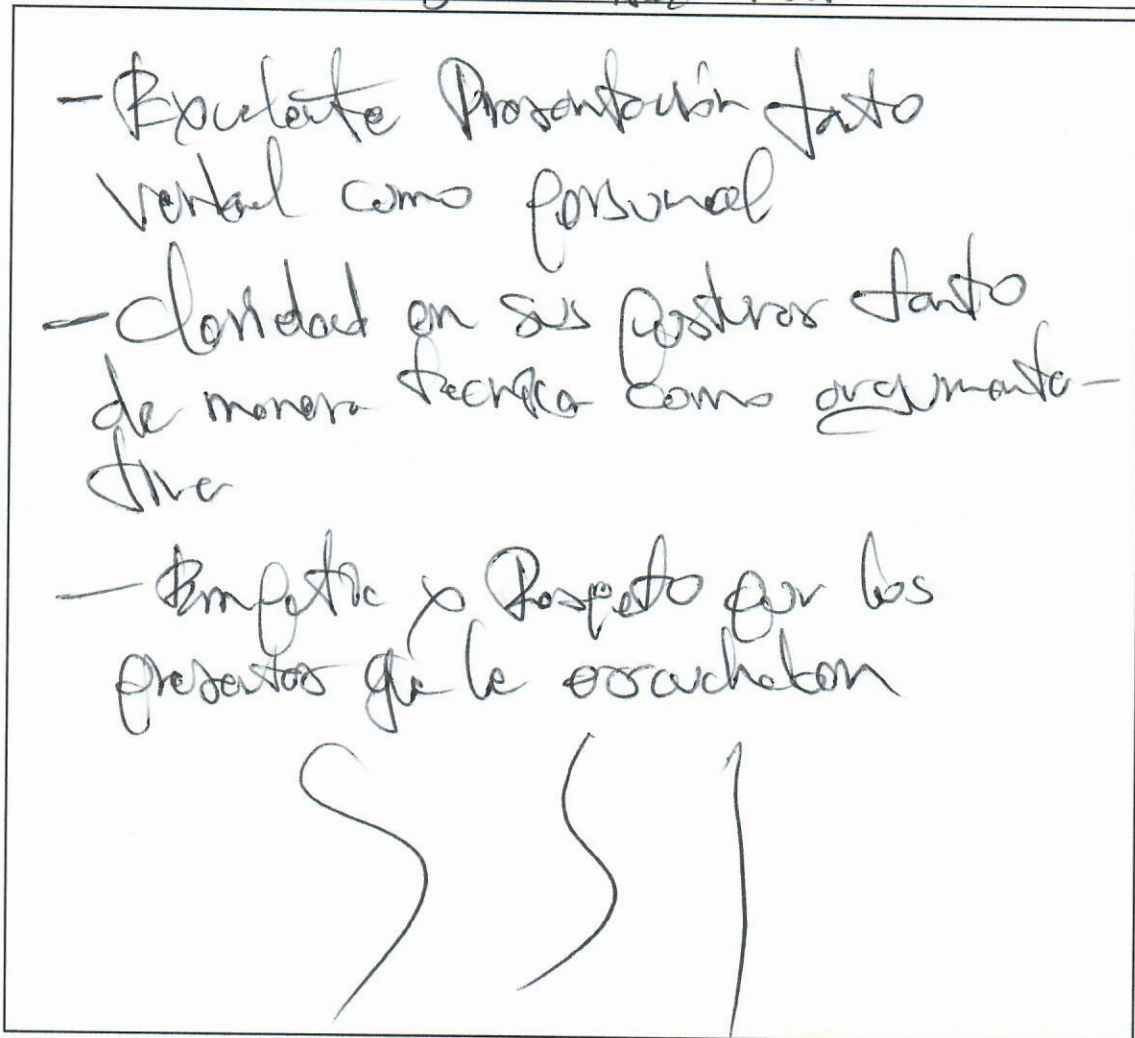 - Excelente Presentación tanto
verbal como personal
- Claridad en sus posturas tanto
de manera tecnica como argumenta-
tiva
- Empatia y Respeto por los
presentes que le escuchaban